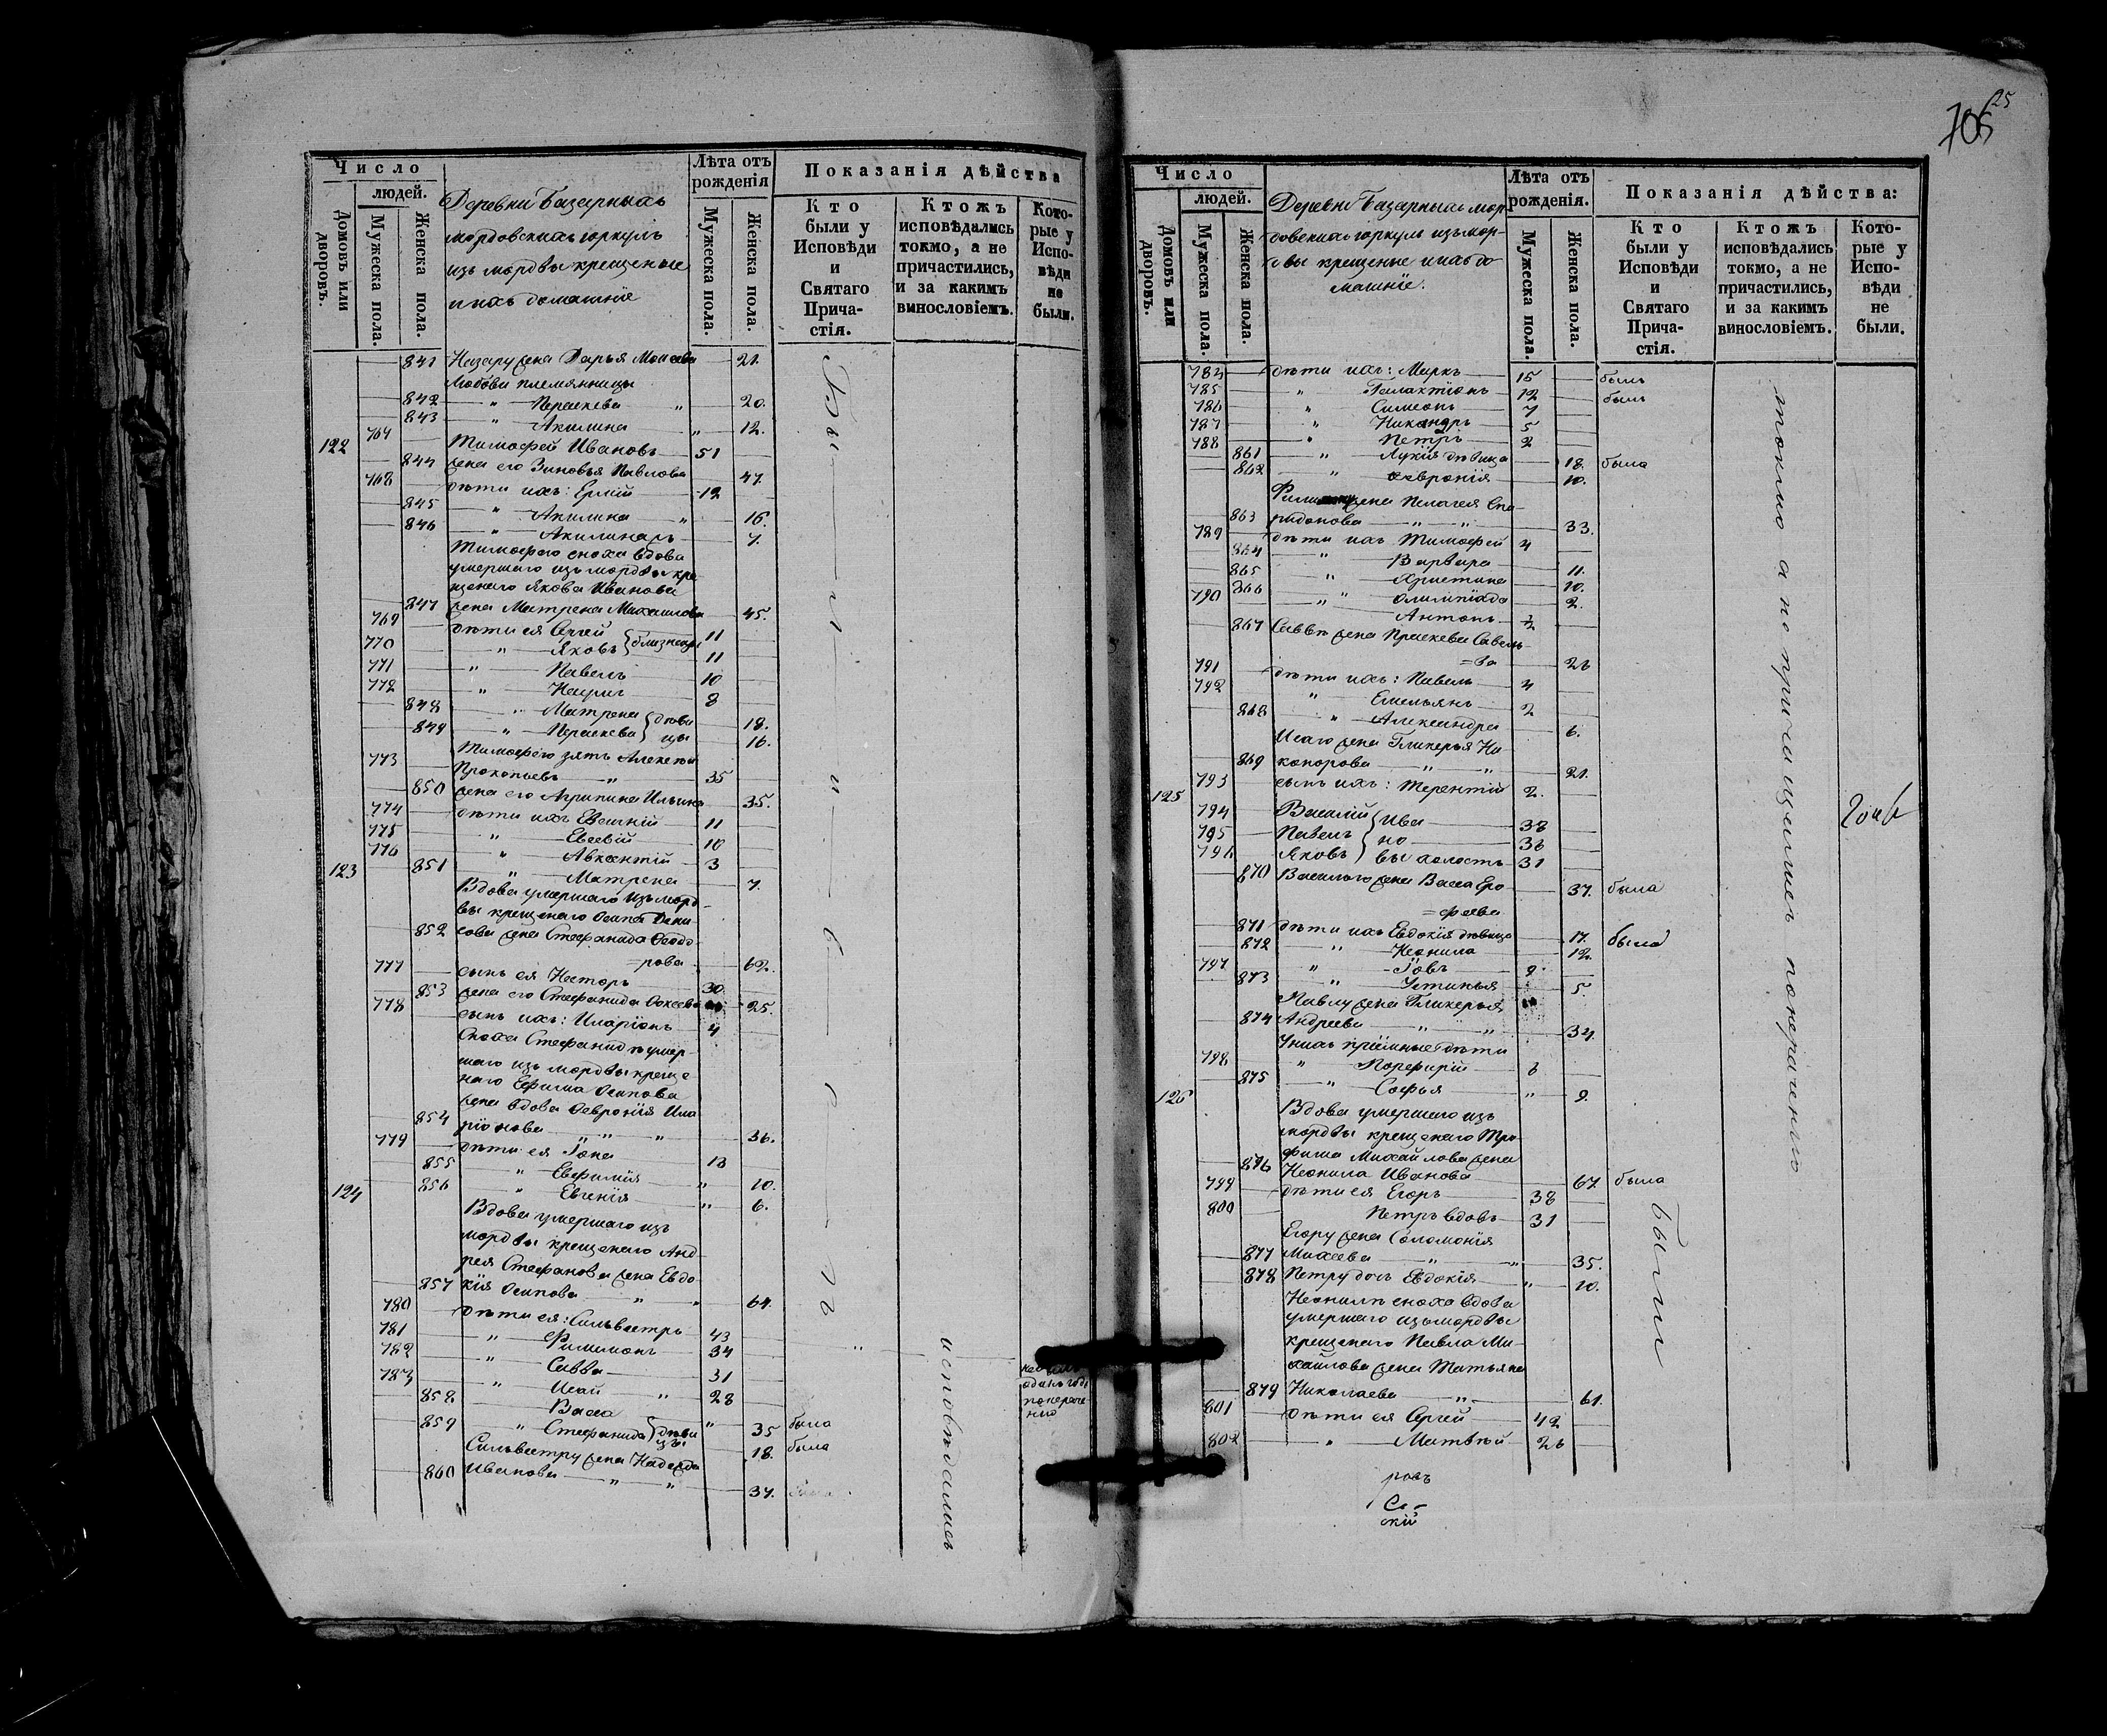 Число
людей.
Домовъ или дворовъ.
Мужеска пола.
Женска пола.
Деревни Базарныхъ
мордовскихъ юркулъ
изъ мордвы крещеные
и ихъ домашніе
Лѣта отъ рожденія
Мужеска пола.
Женска пола.
Показанія дѣйства
Кто были у Исповѣди и Святаго Причастія.
Ктожъ исповѣдались токмо, а не причастились, и за какимъ винословіемъ.
Которые у Исповѣди не были.
841 Назару жена Дарья Моисеева 21.
Любови племянницы
842 " Параскева " 20.
843 " Акилина " 12.
122 767 Тимофей Ивановъ 51
844 жена его Зиновья Павлова 47.
768 дѣти ихъ: Ермій 12
845 " Акилина " 16.
846 " Акилина 7.
Тимофею сноха вдова
умершаго изъ мордвы кре
щенаго Якова Иванова
847 жена Матрена Михаилова 45.
769 дѣти ея Сергей } близнецы 11
770 " Яковъ 11
771 " Павелъ 10
772 " Наумъ 8
848 " Матрена } дѣви 18.
849 " Параскева } цы 16.
Тимофею зять Алексей
773 Прокопьевъ " 35
850 жена его Агрипина Ильина 35.
774 дѣти ихъ Евгеній 11
775 " Евсевій 10
776 " Авксентій 3
851 " Матрена 7.
123 Вдова умершаго изъ морд
вы крещенаго Осипа Дени
852 сова жена Стефанида Ѳеодо
=рова 62.
777 сынъ ея Несторъ 30.
853 жена его Стефанида 25.
778 сынъ ихъ: Иларіонъ 4
Сноха Стефанидѣ умер
шаго изъ мордвы креще
наго Ефима Осипова
жена вдова Ѳевронія Ила
854 ріонова " " " 36.
779 дѣти ея Іона 13
855 " Евфимія " 10.
856 " Евгенія " 6.
124 Вдова умершаго изъ
мордвы крещенаго Анд
рея Стефанова жена Евдо
857 кія Осипова " " 64.
780 дѣти ея: Сильвестръ 43
781 " Филимонъ 34
782 " Савва 31
783 " Исай " 28
858 Васса " 35 была
859 " Стефанида } дѣви цы 18. была
Сильвестру жена Надежда
860 Иванова " " 37.
исповѣдались
25
Число
людей.
Домовъ или дворовъ.
Мужеска пола.
Женска пола.
Деревни Базарныхъ мор
довскихъ юркулъ изъ мор
двы крещеные и ихъ до
машніе.
Лѣта отъ рожденія.
Мужеска пола.
Женска пола.
Показанія дѣйства:
Кто были у Исповѣди и Святаго Причастія.
Ктожъ исповѣдались токмо, а не причастились, и за какимъ винословіемъ.
Которые у Исповѣди не были.
784 дѣти ихъ: Маркъ 15 былъ
785 " Галактіонъ 12 былъ
786 " Симеонъ 7
787 " Никандръ 5
788 " Петръ 2
861 " Лукія дѣвица 18. была
862 " Ѳевронія 10.
жена Пелагея Спи
863 ридонова " " 33.
789 дѣти ихъ Тимофей 4
864 " Варвара 11.
865 " Христина 10.
866 " Олимпіада 2.
790 Антонъ
867 Саввѣ жена Праскева Савель
=ва 26
791 дѣти ихъ: Павелъ 4
792 " Емельянъ 2
868 " Александра 6.
Исаю жена Гликерья Ни
869 конорова " " 21.
793 сынъ ихъ: Терентій 2.
125 794 Василій } Ива 38
795 Павелъ } но 36
796 Яковъ } вы холостъ 31
870 Василью жена Васса Еро 37. была
=феева
871 дѣти ихъ Евдокія дѣвица 17. была
872 " Неонила 12.
797 " Іовъ 9.
873 " Устинья 5.
Павлу жена Гликерья
874 Андреева " " 34.
У нихъ пріемные дѣти
798 " Порфирій 6
875 " Софья " 9.
126 Вдова умершаго изъ
мордвы крещенаго Тро
фима Михайлова жена
876 Неонила Иванова 67. была
799 дѣти ея Егоръ 38
800 Петръ вдовъ 31
Егору жена Соломонія
877 Михеева " " 35.
878 Петру дочь Евдокія " 10.
Неонилѣ сноха вдова
умершаго изъ мордвы
крещенаго Павла Ми
хайлова жена Татьяна
879 Николаева " 61.
801 дѣти ея Сергей 42
802 " Матвѣй 26
токмо а не причащались по нераченію
Были
ровъ
Се-
скій